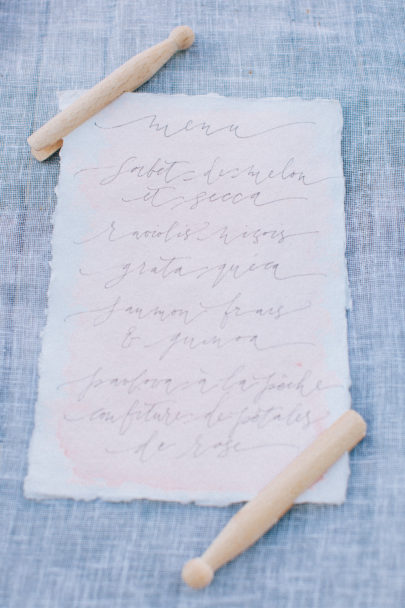 menu
Sorbet de melon
et secca
raviolis niçois
grata queca
Saumon frais
& quinoa
pavlova à la pêche
confiture de pétales
de rose